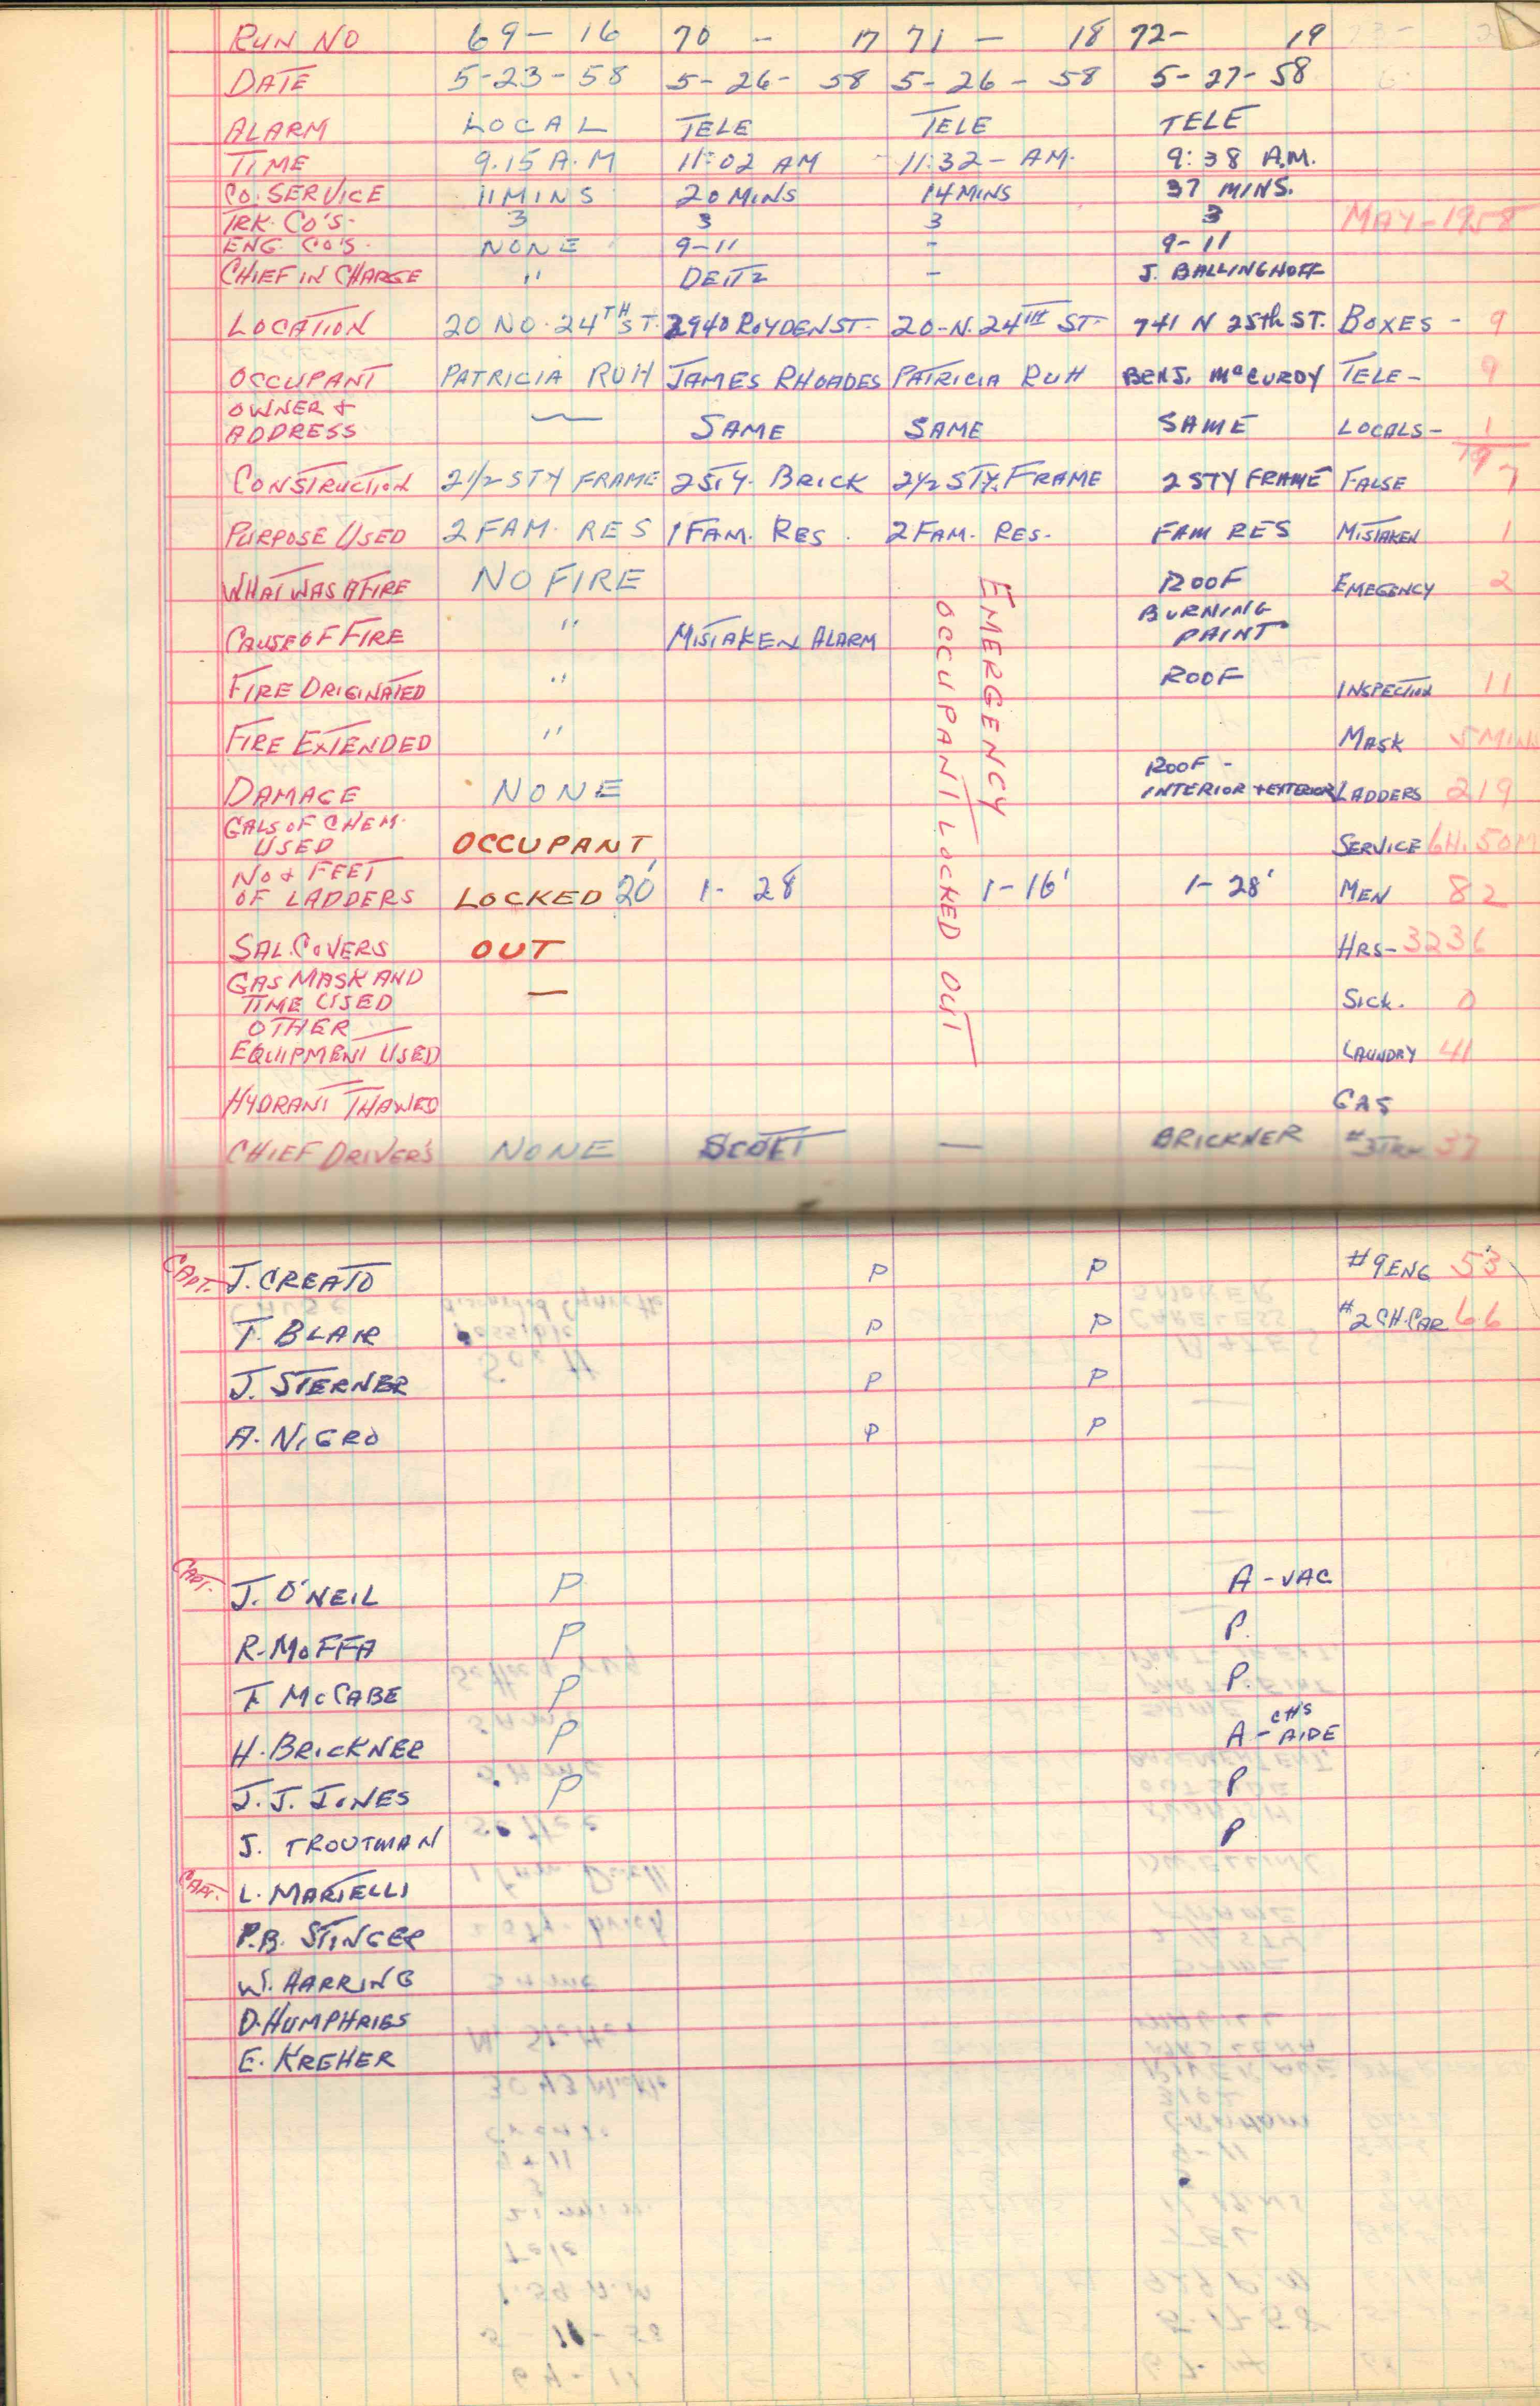 RUN NO 69-16 70 - 17 71 - 18 72- 19
DATE 5-23-58 5-26-58 5-26-58 5-27-58
ALARM LOCAL TELE TELE TELE
TIME 9.15 A.M 11:02 AM 11:32-AM. 9:38 A.M.
CO. SERVICE 11 MINS 20 MINS 14 MINS 37 MINS.
TRK. CO'S- 3 3 3 3 MAY-1958
ENG. CO'S. NONE 9-11 - 9-11
CHIEF IN CHARGE " DEITZ - J. BALLINGHOFF
LOCATION 20 NO. 24TH ST. 2940 ROYDEN ST- 20-N. 24TH ST- 741 N 25th ST. BOXES - 9
OCCUPANT PATRICIA RUH JAMES RHOADES PATRICIA RUH BENJ. McCURDY TELE- 9
OWNER &
ADDRESS — SAME SAME SAME LOCALS- 1
19
CONSTRUCTION 2 1/2 STY FRAME 2 STY. BRICK 2 1/2 STY. FRAME 2 STY FRAME FALSE 7
PURPOSE USED 2 FAM. RES 1 FAM. RES. 2 FAM. RES. FAM RES MISTAKEN 1
WHAT WAS AFIRE NO FIRE ROOF EMEGENCY 2
CAUSE OF FIRE " MISTAKEN ALARM BURNING
PAINT
EMERGENCY
OCCUPANT LOCKED OUT
FIRE ORIGINATED " ROOF INSPECTION 11
FIRE EXTENDED " MASK 5 MINS
DAMAGE NONE ROOF -
INTERIOR + EXTERIOR LADDERS 219
GALS OF CHEM.
USED OCCUPANT SERVICE 6H. 50M
NO & FEET
OF LADDERS LOCKED 20' 1- 28 1-16' 1-28' MEN 82
SAL. COVERS OUT HRS-3236
GAS MASK AND
TIME USED — SICK. 0
OTHER —
EQUIPMENT USED LAUNDRY 41
HYDRANT THAWED GAS
CHIEF DRIVER'S NONE SCOTT — BRICKNER #3TRK 37
CAPT. J. CREATO P P #9 ENG 53
T. BLAIR P P #2 CH. CAR 66
J. STERNER P P
A. NIGRO P P
CAPT. J. O'NEIL P A-VAC
R. MOFFA P P.
F. McCABE P P.
H. BRICKNER P A-CH'S AIDE
J. J. JONES P P
J. TROUTMAN P
CAPT. L. MARTELLI
P.B. STINGER
W. HARRING
D. HUMPHRIES
E. KREHER